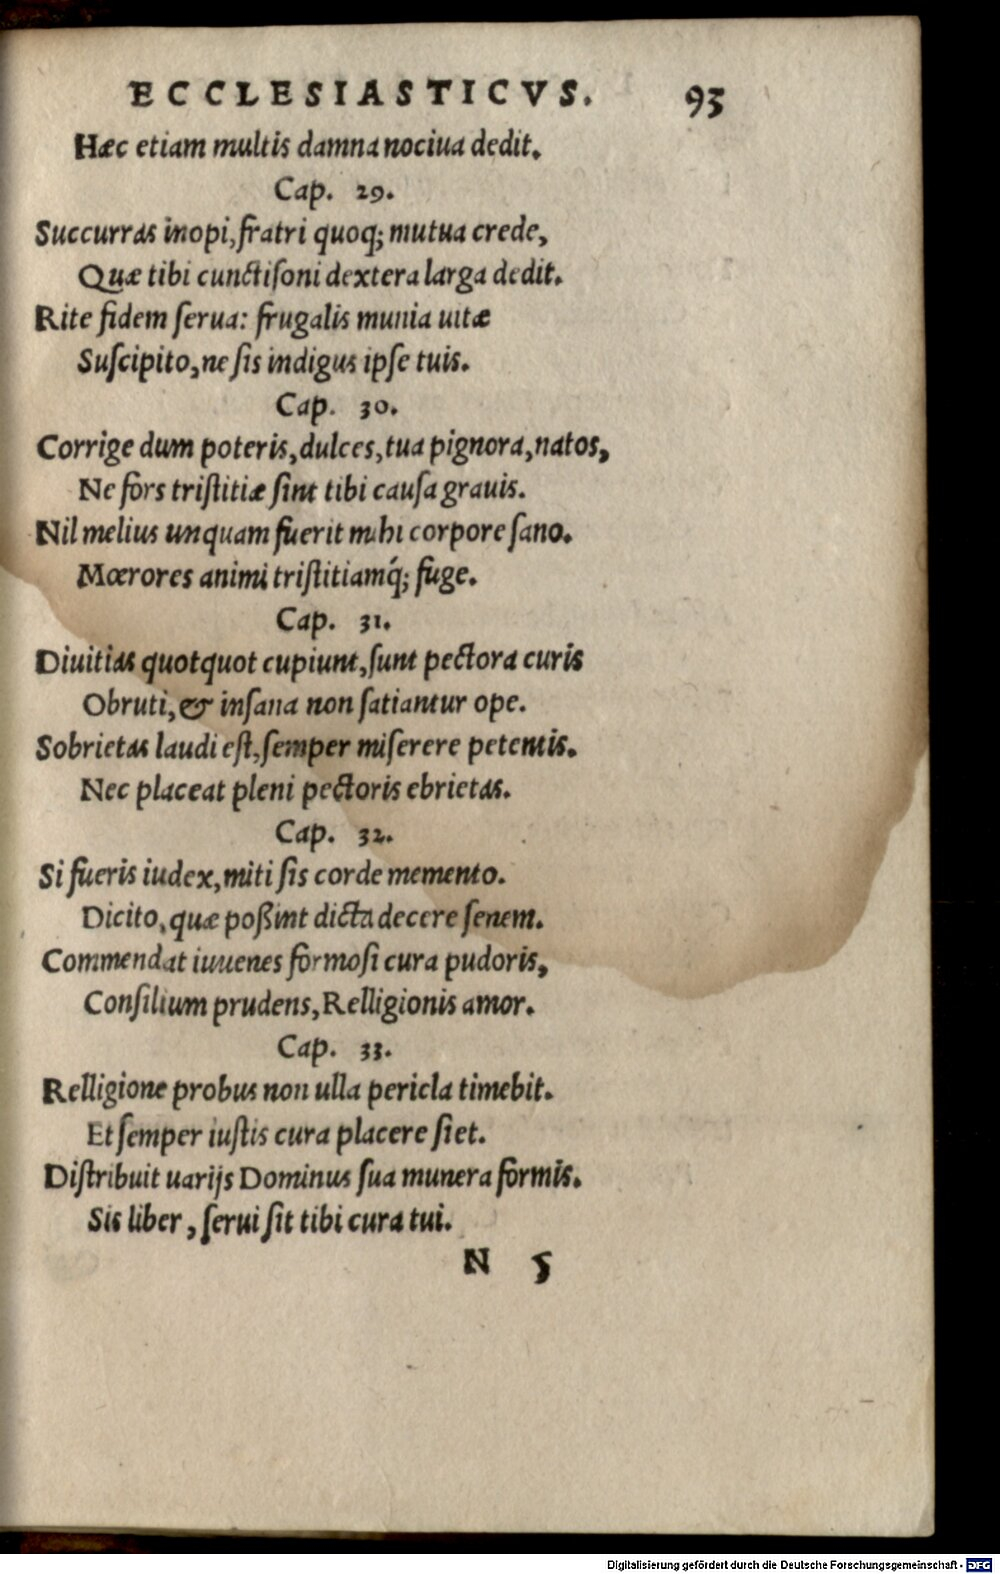 ECCLESIASTICVS. 93
Hæc etiam multis damna nociua dedit.
Cap. 29.
Succurras inopi, fratri quoq; mutua crede,
Quæ tibi cunctiſoni dextera larga dedit.
Rite fidem ſerua: frugalis munia uitæ
Suſcipito, ne ſis indigus ipſe tuis.
Cap. 30.
Corrige dum poteris, dulces, tua pignora, natos,
Ne fors triſtitiæ ſint tibi cauſa grauis.
Nil melius unquam fuerit mihi corpore ſano.
Mœrores animi triſtitiamq́; fuge.
Cap. 31.
Diuitias quotquot cupiunt, ſunt pectora curis
Obruti, & inſana non ſatiantur ope.
Sobrietas laudi eſt, ſemper miſerere petentis.
Nec placeat pleni pectoris ebrietas.
Cap. 32.
Si fueris iudex, miti ſis corde memento.
Dicito, quæ poßint dicta decere ſenem.
Commendat iuuenes formoſi cura pudoris,
Conſilium prudens, Relligionis amor.
Cap. 33.
Relligione probus non ulla pericla timebit.
Et ſemper iuſtis cura placere ſiet.
Diſtribuit uarijs Dominus ſua munera formis.
Sis liber, ſerui ſit tibi cura tui.
N 5
Digitalisierung gefördert durch die Deutsche Forschungsgemeinschaft - DFG